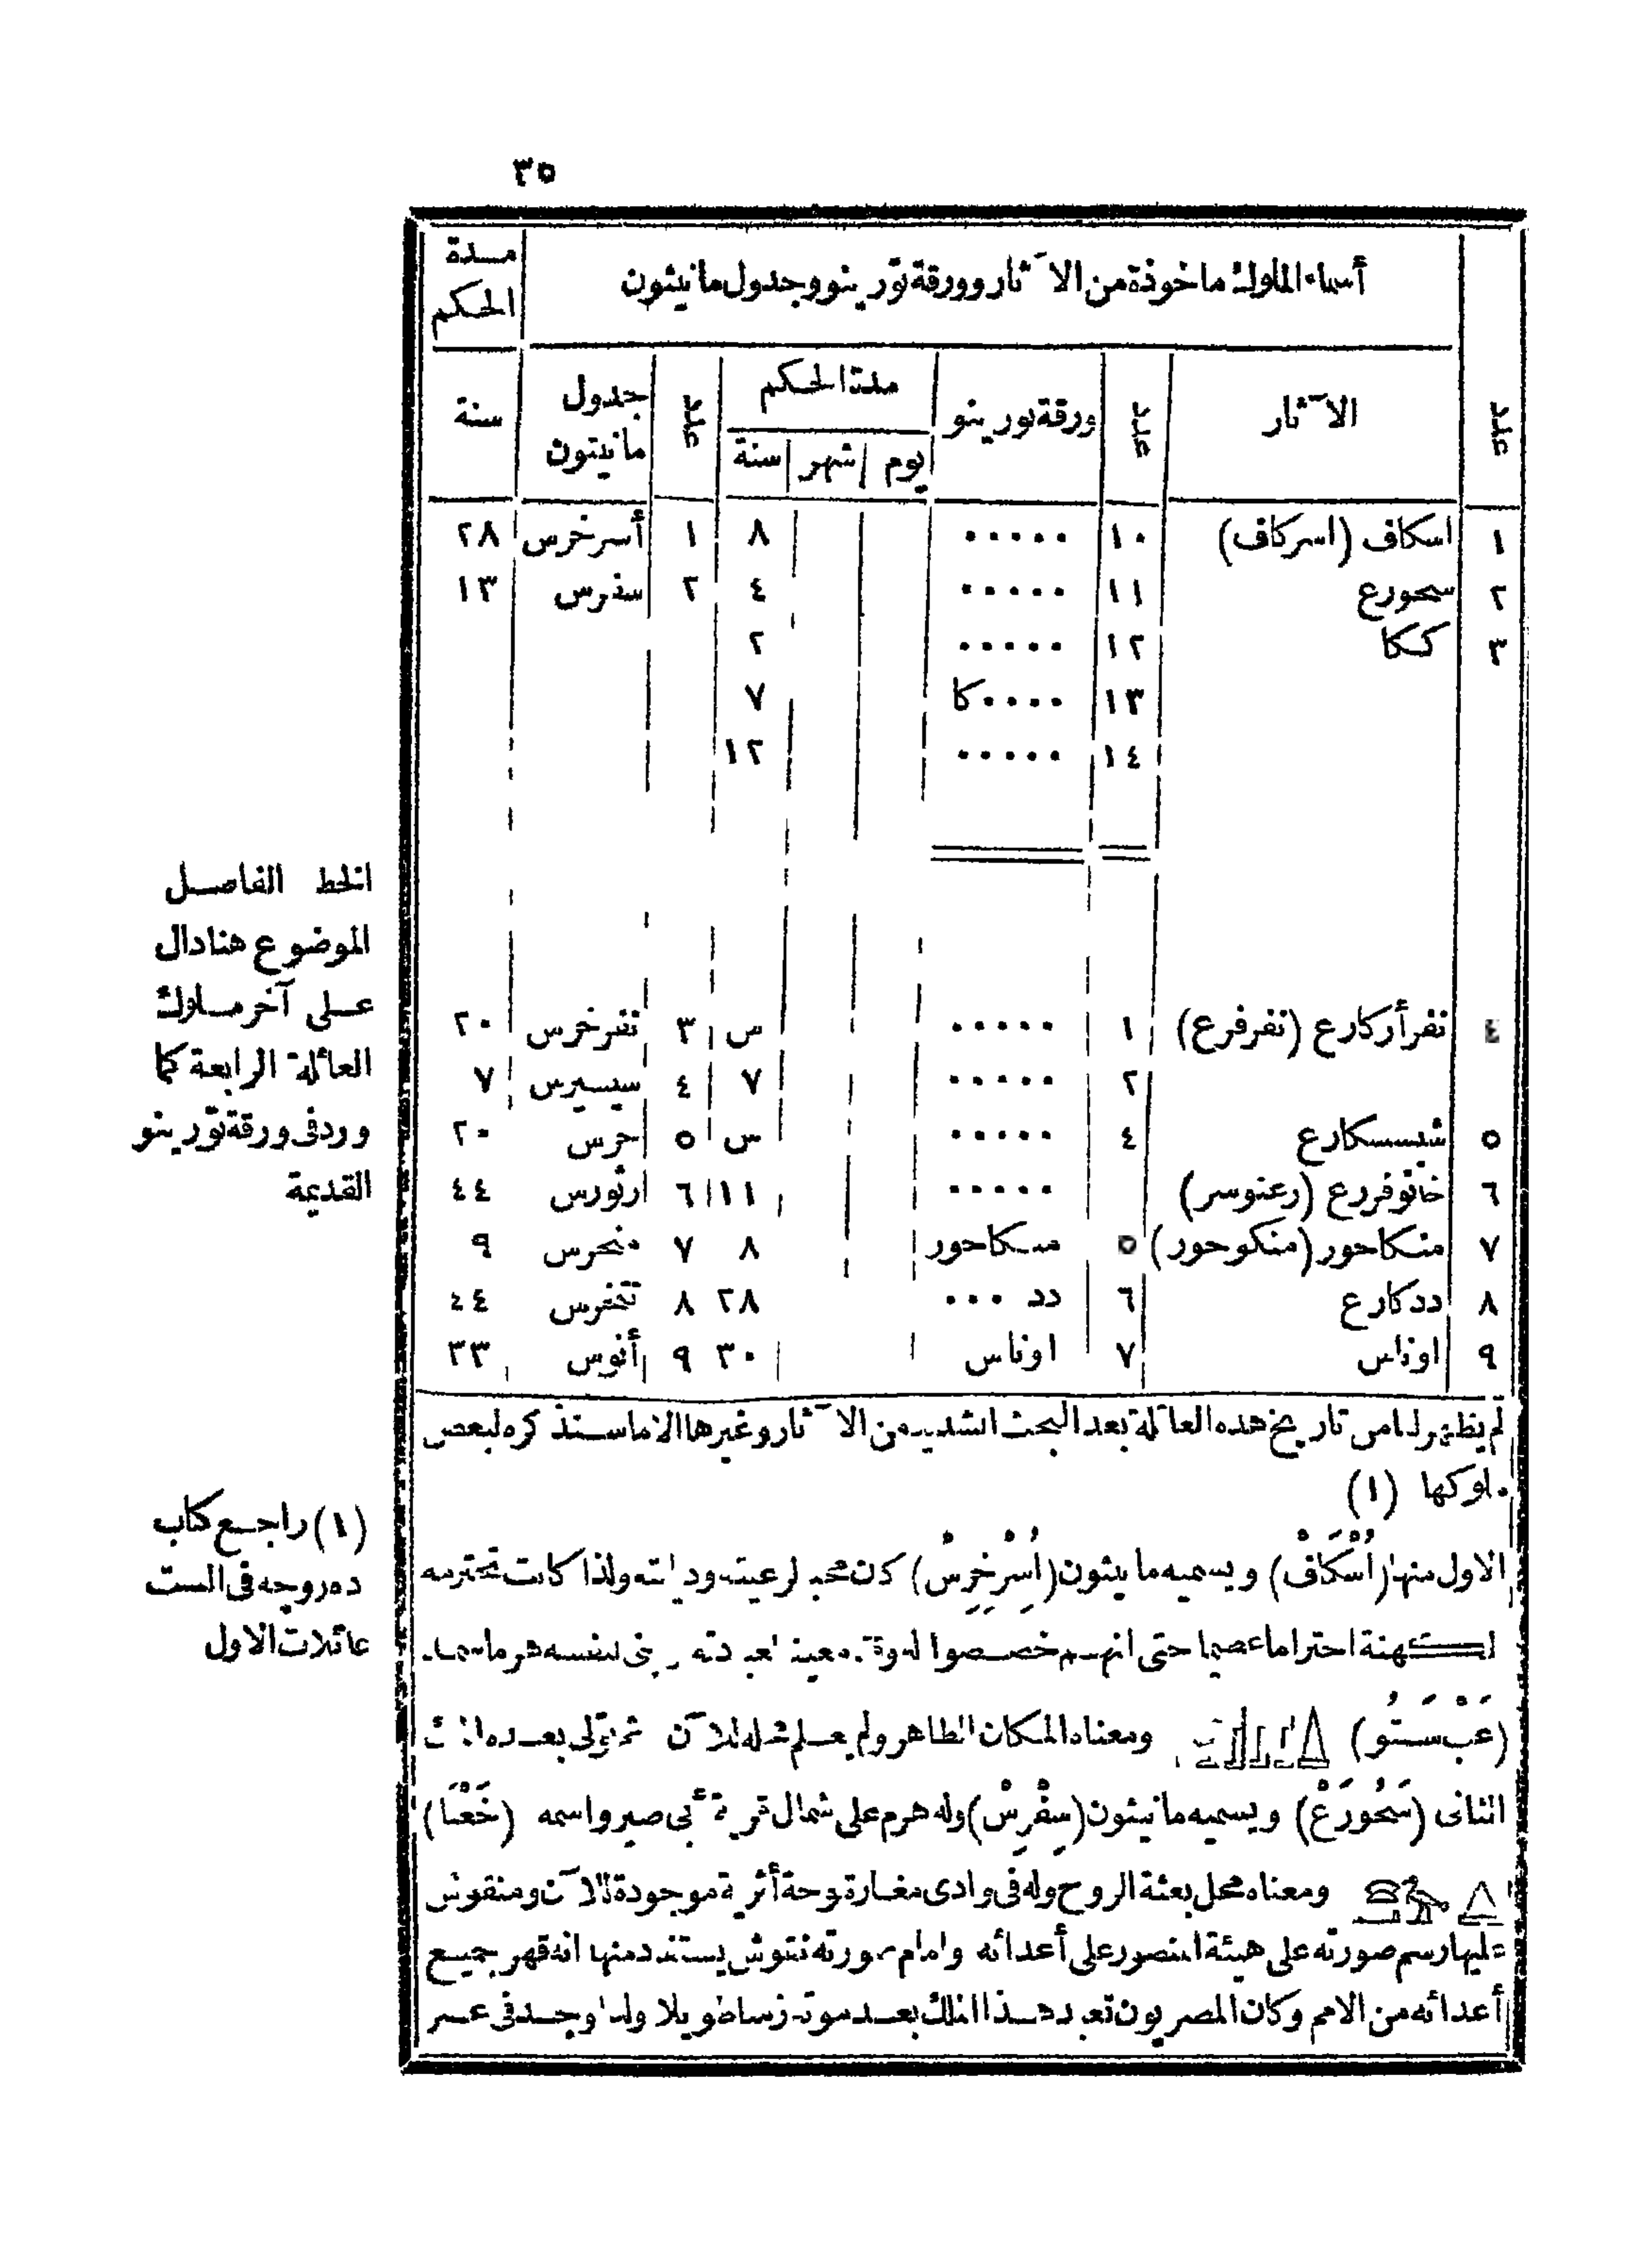 ٣٥
أسماء الملوك ماخوذة من الآثار وورقة تورينو وجدول مانيثون
مدة
الحكم
عدد
الآثار
عدد
ورقة تورينو
مدة الحكم
يوم شهر سنة
عدد
جدول
مانيتون
سنة
١ اسكاف (اسركاف) ١٠ ..... ٨ ١ أسرخرس ٢٨
٢ سحورع ١١ ..... ٤ ٢ سفرس ١٣
٣ ككا ١٢ ..... ٢
١٣ ....كا ٧
١٤ ..... ١٢
٤ نفرأركارع (نفرفرع) ١ ..... س ٣ نفرخرس ٢٠
٢ ..... ٧ ٤ سيسيرس ٧
٥ شبسسكارع ٤ ..... س ٥ خرس ٢٠
٦ خانوفررع (رعنوسر) ..... ١١ ٦ ارثورس ٤٤
٧ منكاحور (منكوحور) ٥ مسكاحور ٨ ٧ منخرس ٩
٨ ددكارع ٦ دد ... ٢٨ ٨ تنخرس ٤٤
٩ اوناس ٧ اوناس ٣٠ ٩ أنوس ٣٣
الخط الفاصل
الموضوع هنا دال
على آخر ملوك
العائلة الرابعة كما
ورد فى ورقة تورينو
القديمة
لم يظهر لنا من تاريخ هذه العائلة بعد البحث الشديد من الآثار وغيرها الا ما سنذكره لبعض
ملوكها (١)
الاول منها (أُسْكَافْ) ويسميه مانيثون (أُسْرْخِرِسْ) كان محبا لرعيته وديانته ولذا كانت تحترمه
الكهنة احتراما عظيما حتى انهم خصصوا له وبنى لنفسه هرما سماه
(عَبْ سَتُو) ومعناه المكان الطاهر ولم يعلم محله للآن ثم تولى بعده الملك
الثانى (سَحُورَعْ) ويسميه مانيثون (سِفْرِسْ) وله هرم على شمال قرية أبى صير واسمه (خَعْبَا)
ومعناه محل بعثة الروح وله فى وادى مغارة لوحة أثرية موجودة للآن ومنقوش
عليها رسم صورته على هيئة المنصور على أعدائه وامام صورته نقوش يستفاد منها انه قهر جميع
أعدائه من الامم وكان المصريون تعبد هذا الملك بعد موته زمنا طويلا ولذا وجد فى عصر
(١) راجع كتاب
ده روجه فى الست
عائلات الاول